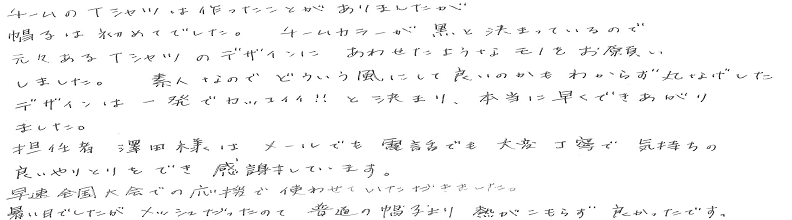 チームのTシャツは作ったことがありましたが
帽子は初めてでした。 チームカラーが黒と決まっているので
元々あるTシャツのデザインに あわせたようなモノをお願い
しました。 素人なので どういう風にして良いのかもわからず丸なげした
デザインは一発でカッコイイ!! と決まり、本当に早くできあがり
ました。
担任者 澤田様は メールでも 電話でも 大変丁寧で 気持ちの
良いやりとりをでき 感謝しています。
早速 全国大会での応援で 使わせていただきました。
暑い日でしたが メッシュだったので 普通の帽子より 熱がこもらず 良かったです。